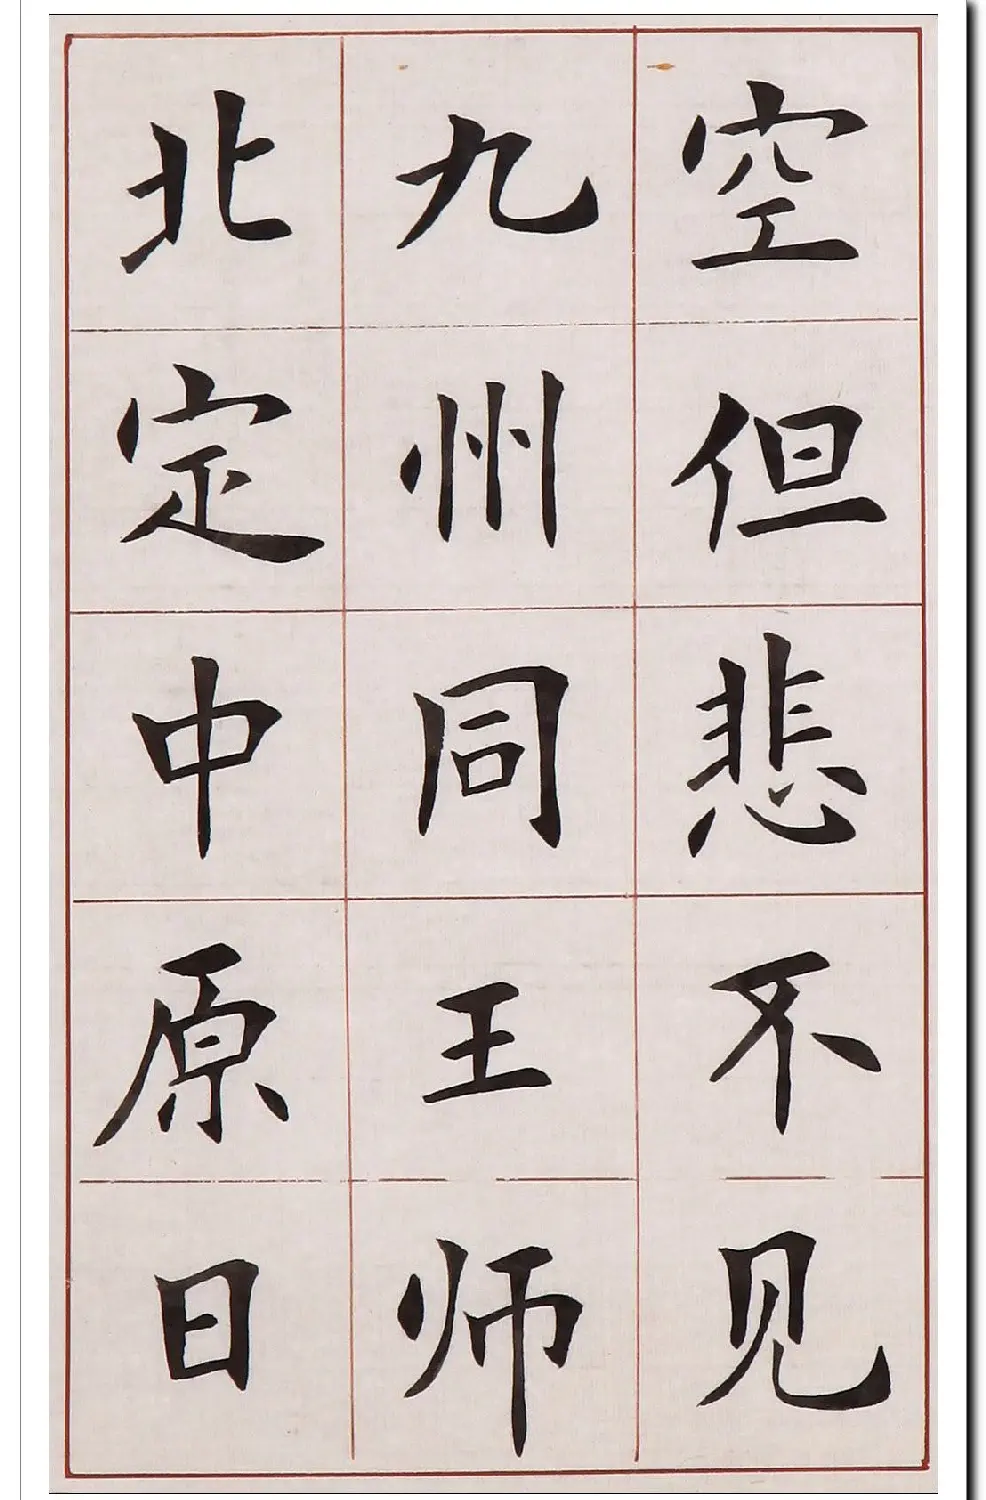 空但悲不见
九州同王师
北定中原日